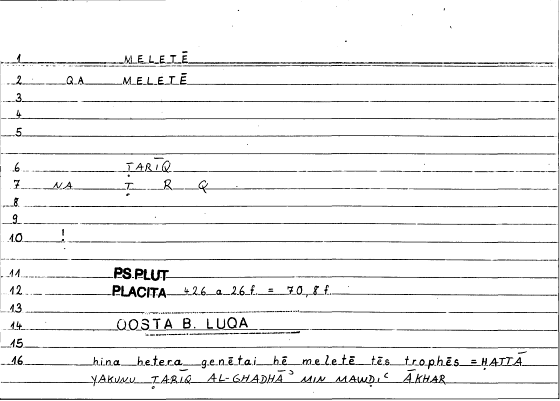 1 MELETĒ
2 QA MELETĒ
3
4
5
6 ṬARĪQ
7 NA Ṭ R Q
8
9
10 !
11 PS.PLUT
12 PLACITA 426 a 26 f. = 70, 8 f.
13
14 QOSTA B. LUQA
15
16 hina hetera genētai hē meletē tēs trophēs = ḤATTĀ
YAKUNU ṬARĪQ AL-GHADHĀʾ MIN MAWḌIʿ ĀKHAR